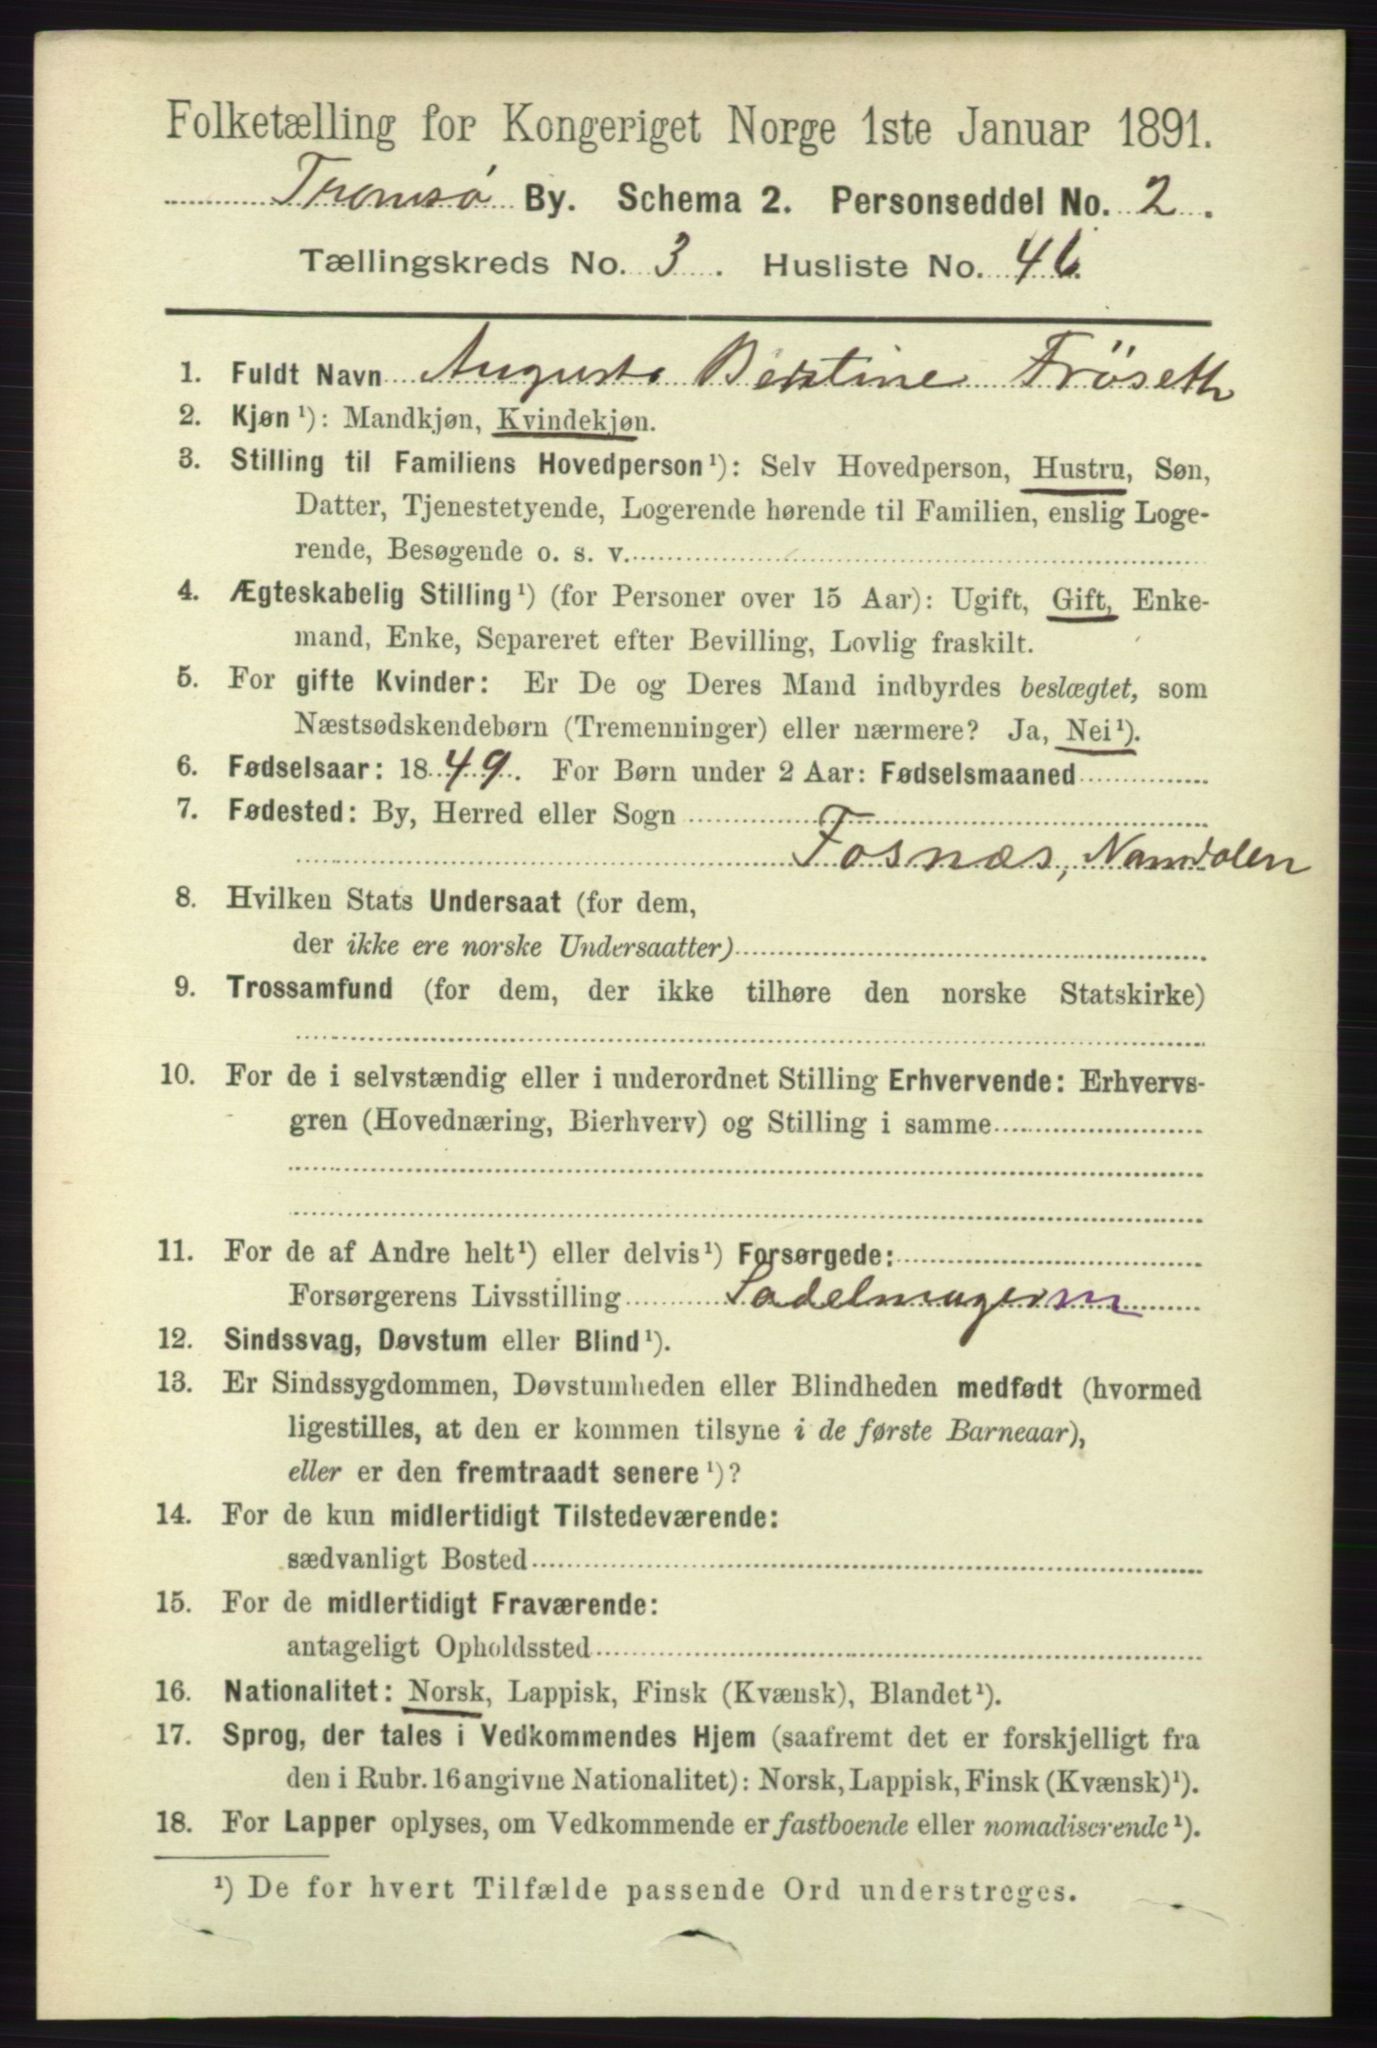 Folketælling for Kongeriget Norge 1ste Januar 1891.
Tromsø By. Schema 2. Personseddel No. 2.
Tællingskreds No. 3. Husliste No. 46.
1. Fuldt Navn Augusta Bentine Fröseth
2. Kjøn¹): Mandkjøn, Kvindekjøn.
3. Stilling til Familiens Hovedperson¹): Selv Hovedperson, Hustru, Søn,
Datter, Tjenestetyende, Logerende hørende til Familien, enslig Loge-
rende, Besøgende o. s. v.
4. Ægteskabelig Stilling¹) (for Personer over 15 Aar): Ugift, Gift, Enke-
mand, Enke, Separeret efter Bevilling, Lovlig fraskilt.
5. For gifte Kvinder: Er De og Deres Mand indbyrdes beslægtet, som
Næstsødskendebørn (Tremenninger) eller nærmere? Ja, Nei¹).
6. Fødselsaar: 1849. For Børn under 2 Aar: Fødselsmaaned
7. Fødested: By, Herred eller Sogn
Fosnæs, Namdalen
8. Hvilken Stats Undersaat (for dem,
der ikke ere norske Undersaatter)
9. Trossamfund (for dem, der ikke tilhøre den norske Statskirke)
10. For de i selvstændig eller i underordnet Stilling Erhvervende: Erhvervs-
gren (Hovednæring, Bierhverv) og Stilling i samme
11. For de af Andre helt¹) eller delvis¹) Forsørgede:
Forsørgerens Livsstilling Sadelmagerm
12. Sindssvag, Døvstum eller Blind¹).
13. Er Sindssygdommen, Døvstumheden eller Blindheden medfødt (hvormed
ligestilles, at den er kommen tilsyne i de første Barneaar),
eller er den fremtraadt senere¹)?
14. For de kun midlertidigt Tilstedeværende:
sædvanligt Bosted
15. For de midlertidigt Fraværende:
antageligt Opholdssted
16. Nationalitet: Norsk, Lappisk, Finsk (Kvænsk), Blandet¹).
17. Sprog, der tales i Vedkommendes Hjem (saafremt det er forskjelligt fra
den i Rubr. 16 angivne Nationalitet): Norsk, Lappisk, Finsk (Kvænsk)¹).
18. For Lapper oplyses, om Vedkommende er fastboende eller nomadiserende¹).
¹) De for hvert Tilfælde passende Ord understreges.